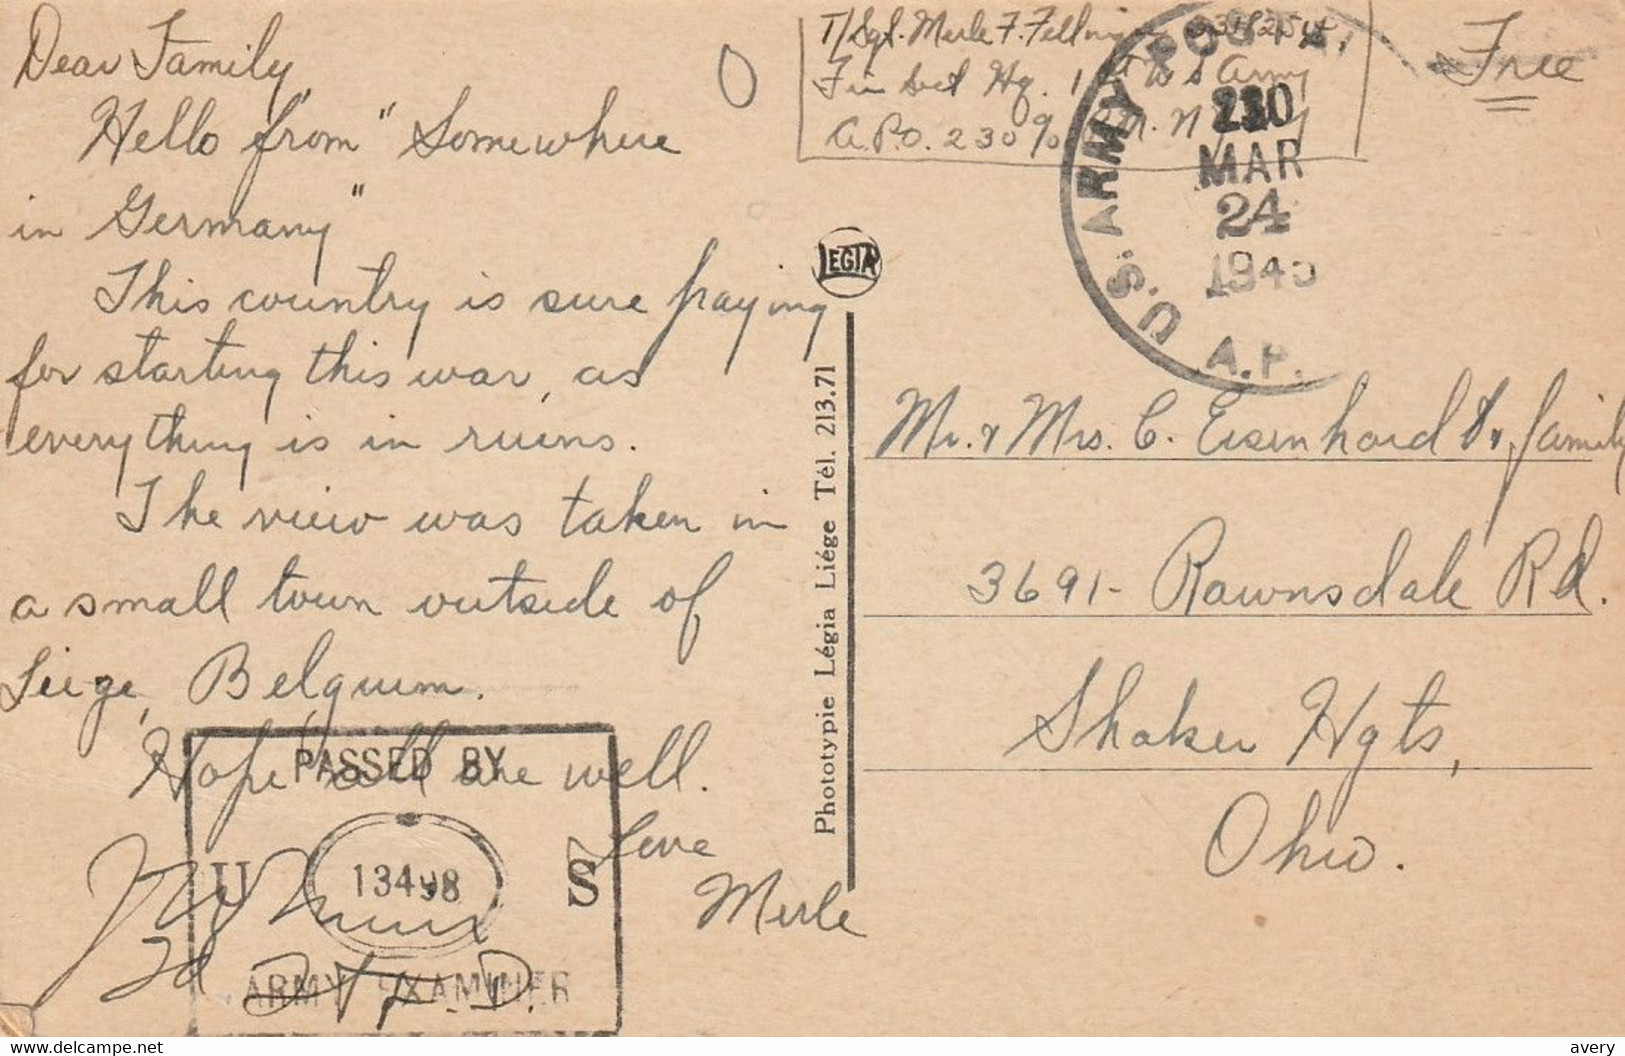 Dear Family,
Hello from "Somewhere
in Germany"
This country is sure paying
for starting this war, as
everything is in ruins.
The view was taken in
a small town outside of
Leige, Belguim.
Hope all are well.
Love
Merle
PASSED BY
U S
13498
ARMY EXAMINER
T/Sgt. Merle F.
Fin Sect Hq. 1st U S Army
A.P.O. 230 % P.M. N.Y.
Free
U.S. ARMY POSTAL
230
MAR
24
1945
A.P.
LEGIA
Phototypie Légia Liége Tél. 213.71
Mr. & Mrs. C. Eisenhard & family
3691 - Rawnsdale Rd.
Shaker Hgts,
Ohio.
www.delcampe.net
avery